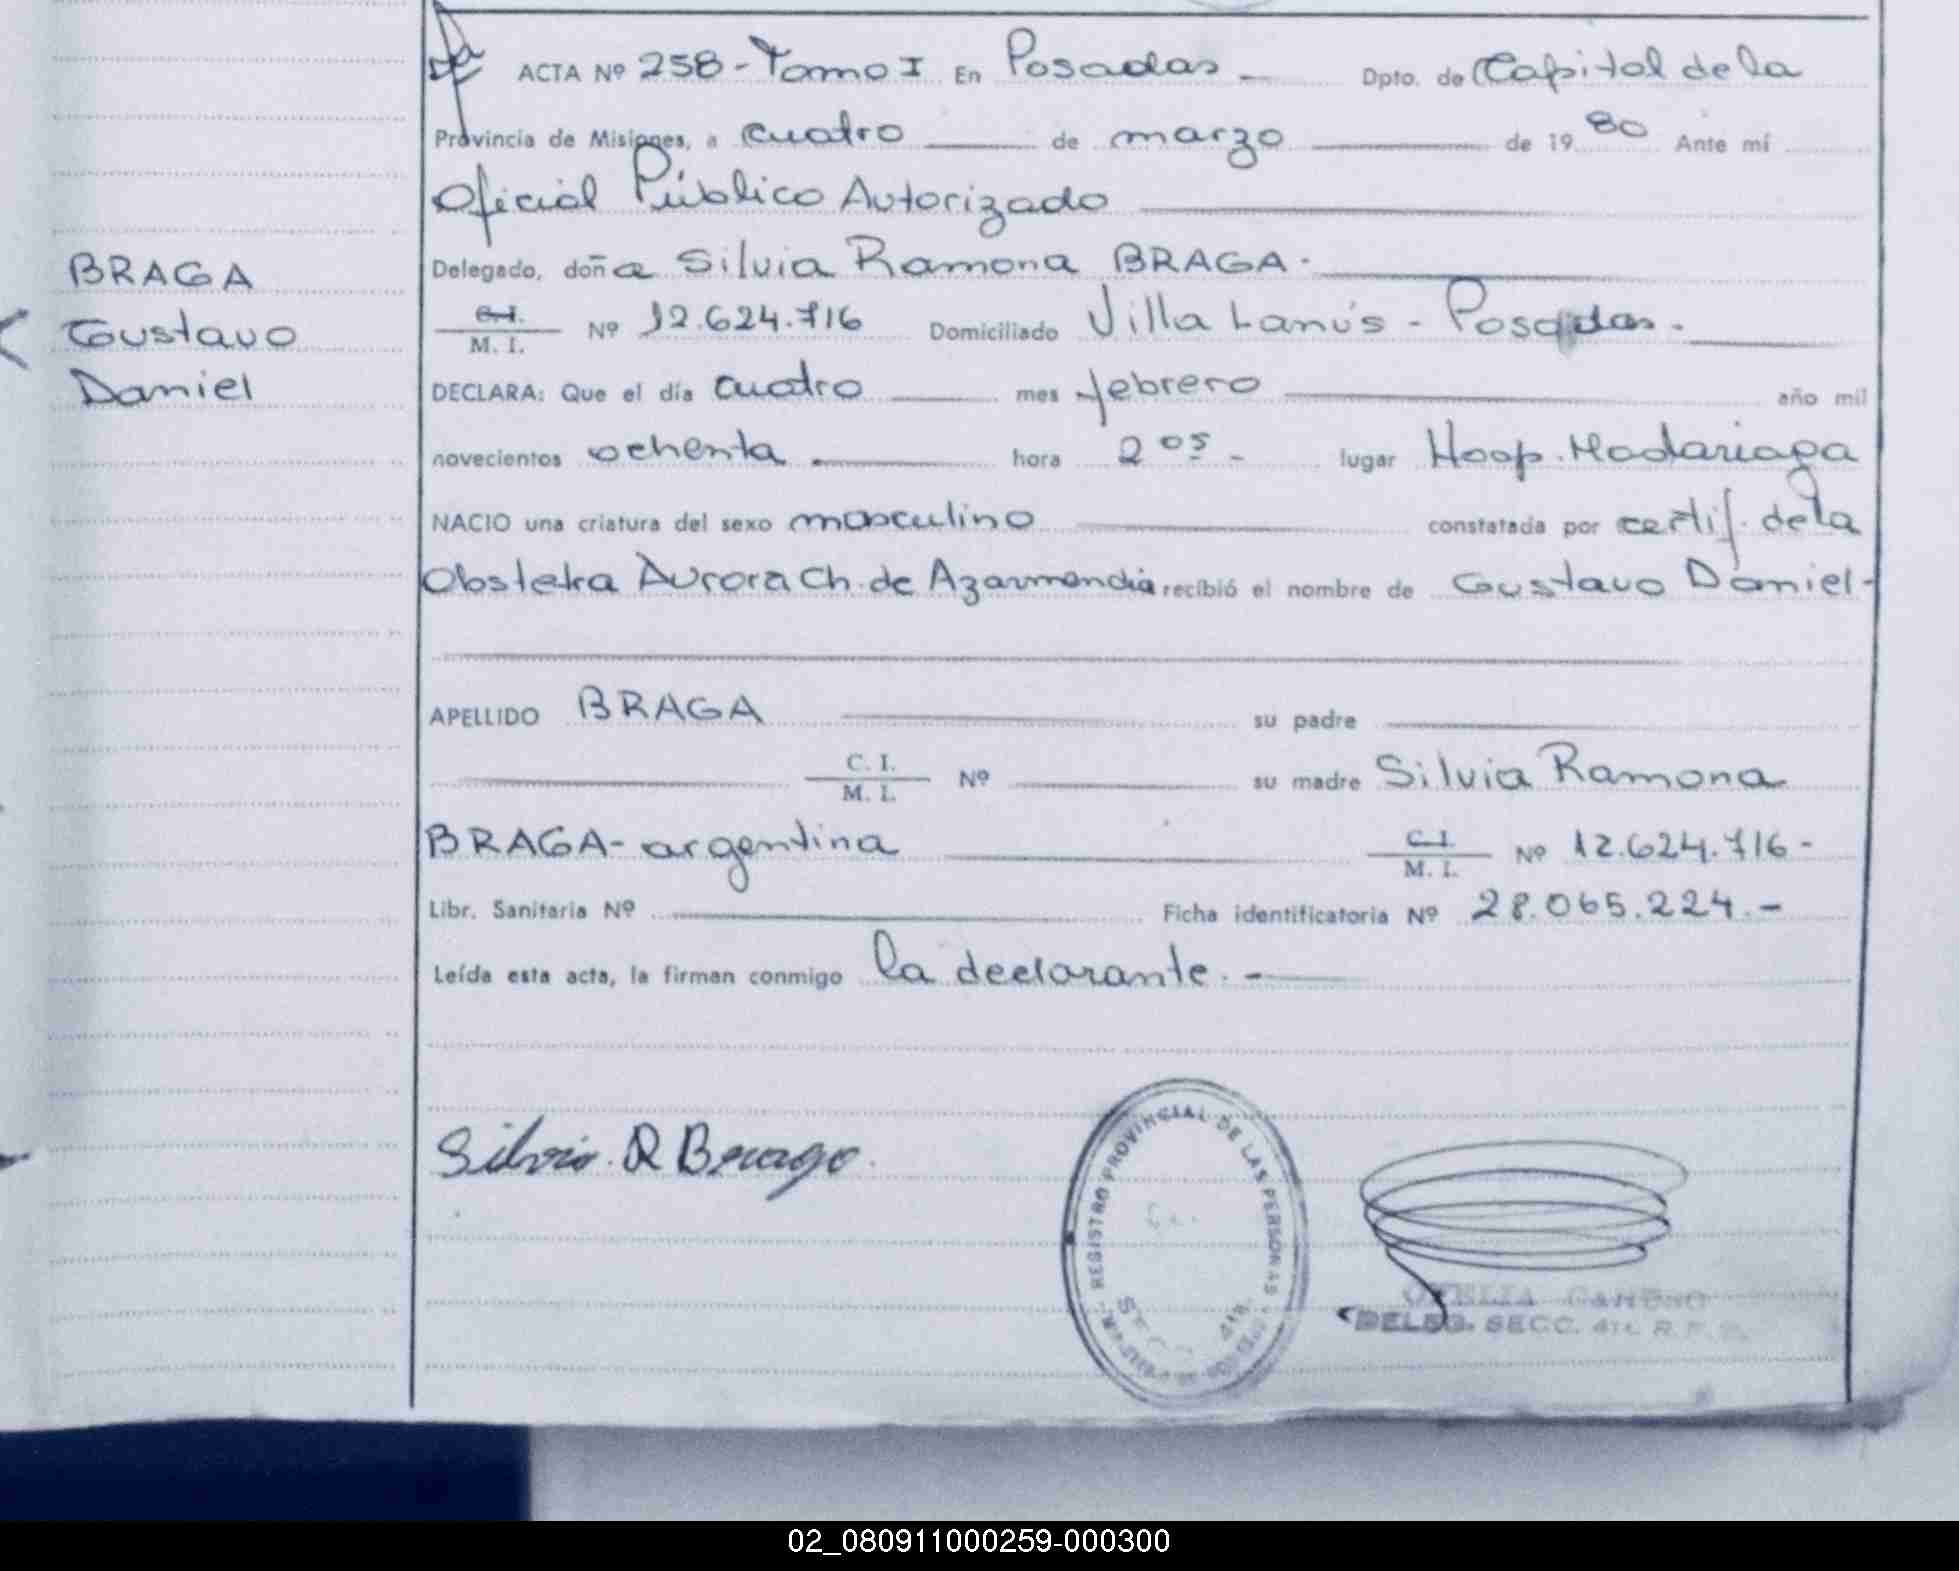 ACTA Nº 258 - Tomo I En Posadas - Dpto. de Capital de la
Provincia de Misiones, a cuatro de marzo de 1980 Ante mí
Oficial Público Autorizado
Delegado, doña Silvia Ramona BRAGA.
C.I. / M. I. Nº 12.624.716 Domiciliado Villa Lanús - Posadas.
DECLARA: Que el día cuatro mes febrero año mil
novecientos ochenta hora 2 05 - lugar Hosp. Madariaga
NACIO una criatura del sexo masculino constatada por certif. de la
Obstetra Aurora Ch. de Azarmendia recibió el nombre de Gustavo Daniel -
APELLIDO BRAGA su padre
C. I. / M. I. Nº su madre Silvia Ramona
BRAGA - argentina C.I. / M. I. Nº 12.624.716 -
Libr. Sanitaria Nº Ficha identificatoria Nº 28.065.224. -
Leída esta acta, la firman conmigo la declarante. -
BRAGA
Gustavo
Daniel
Silvia R Braga
REGISTRO PROVINCIAL DE LAS PERSONAS
SECC. 4ta.
DELEG. SECC. 4ta. R. P. P.
02_080911000259-000300